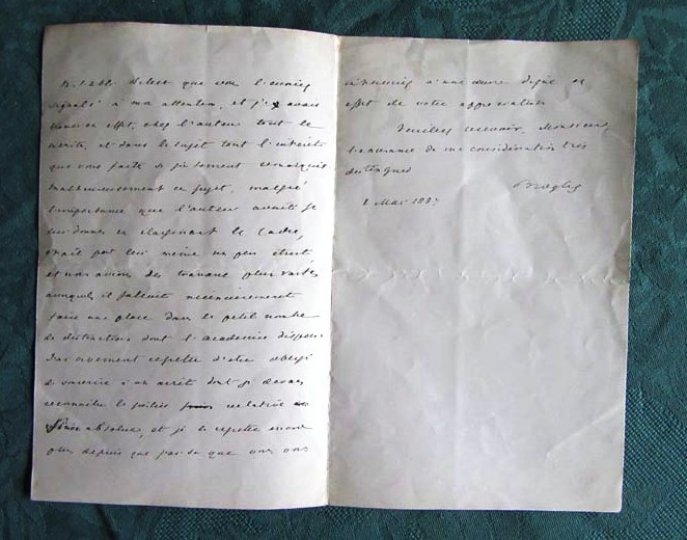 M. l'abbé Delect que vous l'aviez
signalé à mon attention, et j'y avais
trouvé en effet, chez l'auteur tout le
mérite, et dans le sujet tout l'intérêt
que vous faite si justement remarquer
malheureusement ce sujet, malgré
l'importance que l'auteur avait su
lui donner en élargissant le cadre,
était par lui même un peu étroit,
et nous avions des travaux plus vastes
auxquels il fallait nécessairement
faire une place dans le petit nombre
de distinctions dont l'académie dispose
J'ai vivement regretté d'être obligé
de souscrire à un arrêt dont je devais
reconnaître la justice relative
sinon absolue, et je le regrette encore
plus depuis que j'ai su que vous vous
intéressiez à une œuvre digne en
effet de votre approbation
Veuillez recevoir, Monsieur,
l'assurance de ma considération très
distinguée
Broglie
2 Mai 188